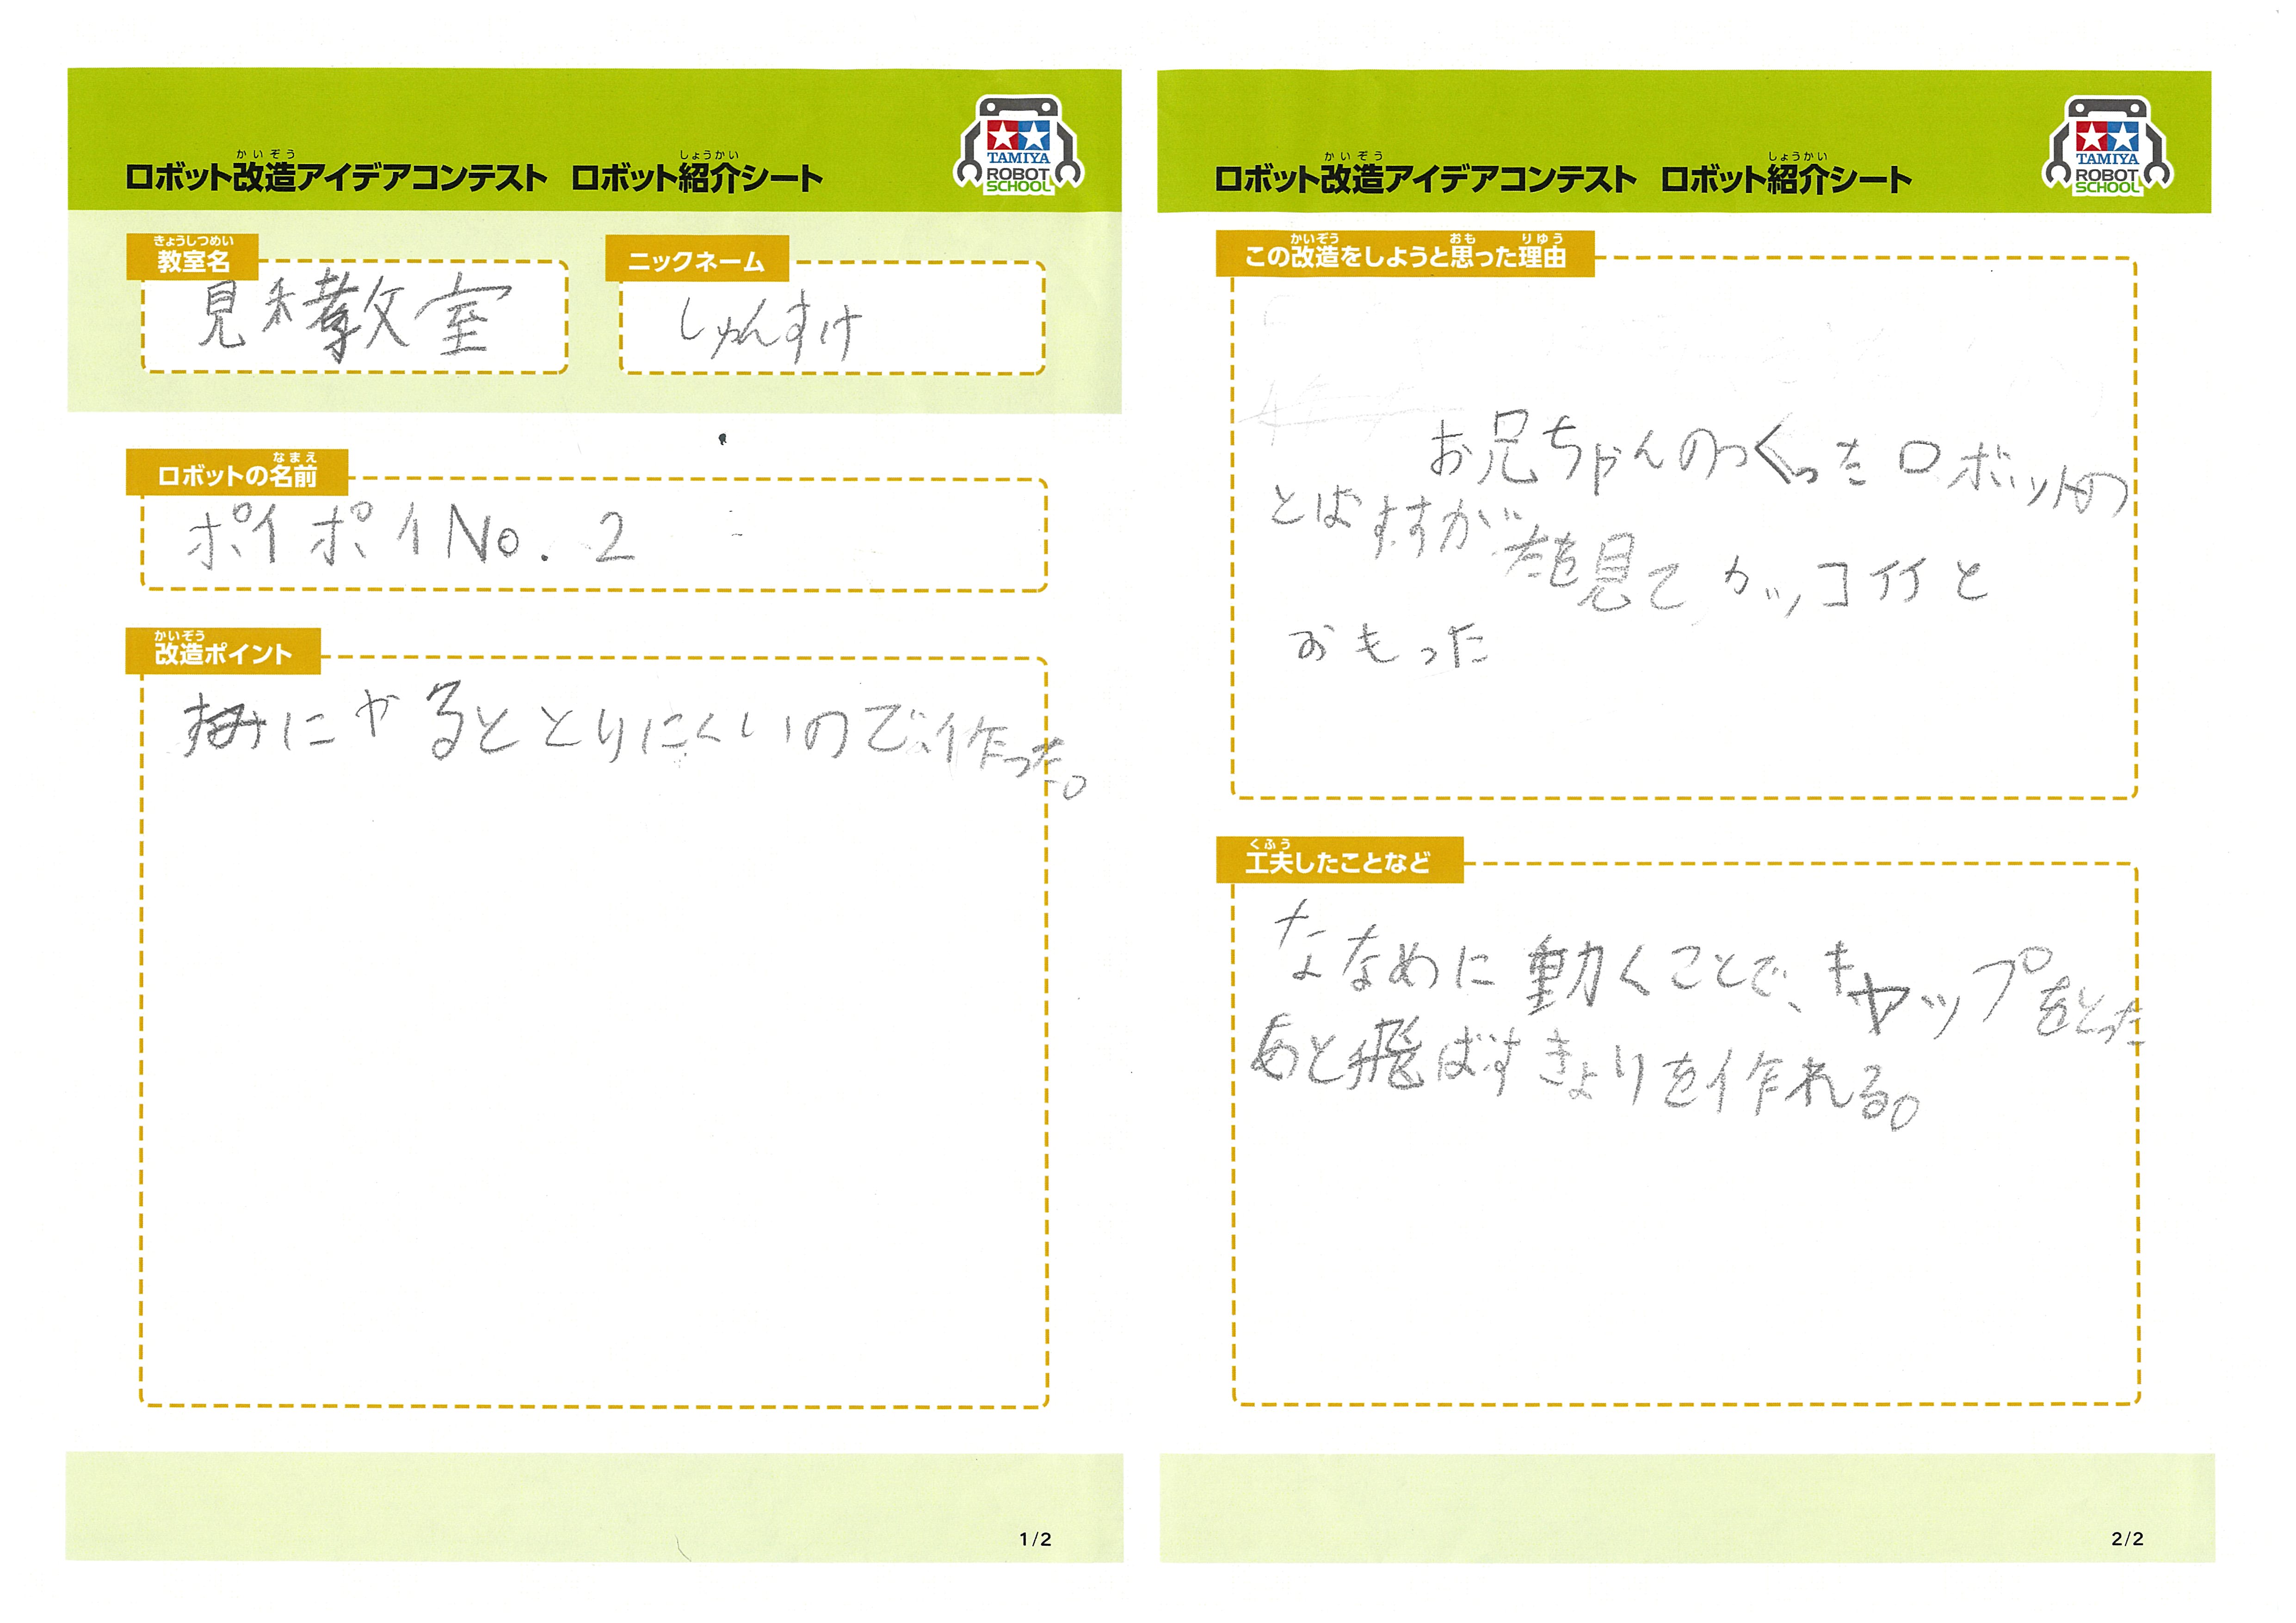 かいぞう しょうかい
ロボット改造アイデアコンテスト ロボット紹介シート
TAMIYA
ROBOT
SCHOOL
きょうしつめい
教室名
見和教室
ニックネーム
しゅんすけ
なまえ
ロボットの名前
ポイポイNo.2
かいぞう
改造ポイント
すみにやるととりにくいので作った。
1/2
かいぞう しょうかい
ロボット改造アイデアコンテスト ロボット紹介シート
TAMIYA
ROBOT
SCHOOL
かいぞう おも りゆう
この改造をしようと思った理由
お兄ちゃんのつくったロボットの
とばすすがたを見てカッコイイと
おもった
くふう
工夫したことなど
ななめに動くことで、キャップをとった
あと飛ばすきょりを作れる。
2/2